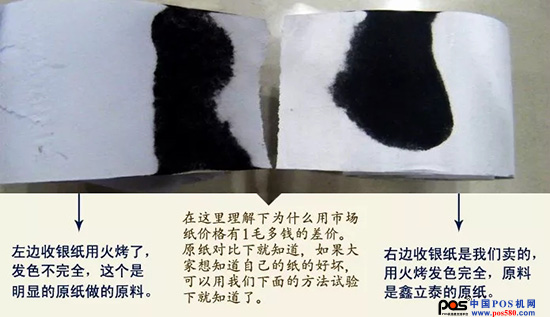 左边收银纸用火烤了,
发色不完全，这个是
明显的原纸做的原料。
在这里理解下为什么用市场
纸价格有1毛多钱的差价。
原纸对比下就知道，如果大
家想知道自己的纸的好坏，
可以用我们下面的方法试验
下就知道了。
右边收银纸是我们卖的，
用火烤发色完全，原料
是鑫立泰的原纸。
pos 中国POS机网
www.pos580.com